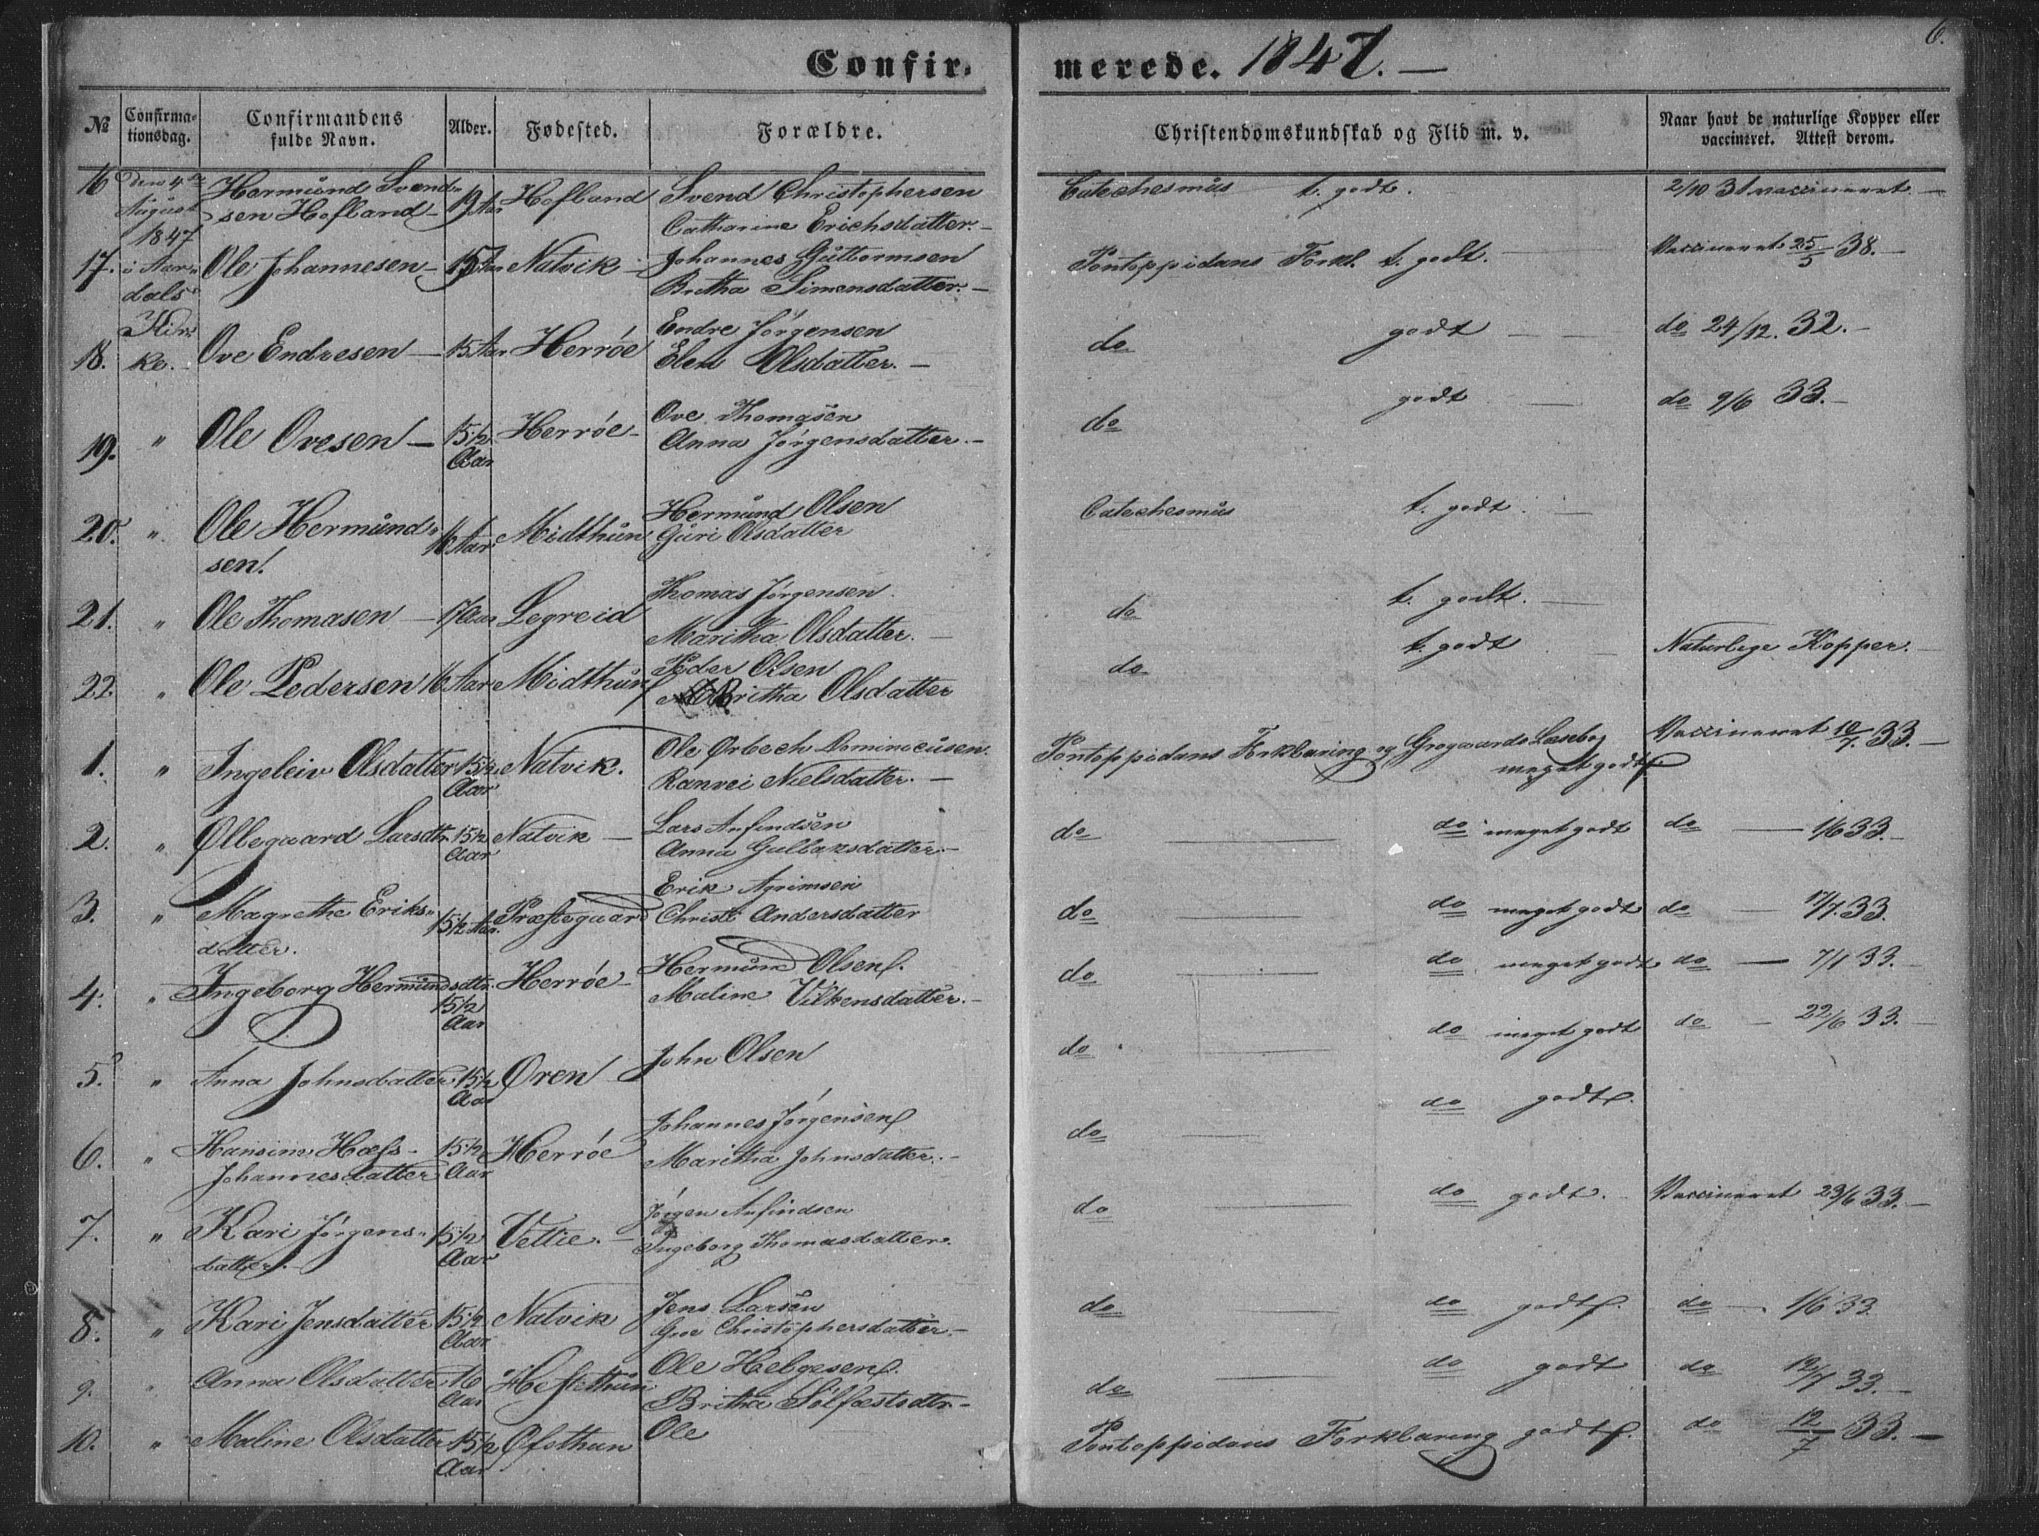 6.
Confir- merede. 1847. —
№ Confirma-tionsdag. Confirmandens fulde Navn. Alder. Fødested. Forældre. Christendomskundskab og Flid m. v. Naar havt de naturlige Kopper eller vaccineret. Attest derom.
16 den 4de Hermund Svend- 19 Aar Hofland Svend Christophersen Catechesmus t. godt. 2/10 31 vaccineret. —
August sen Hofland — Catharine Erichsdatter. —
1847
17. i Aar- Ole Johannesen — 15 Aar Natvik — Johannes Guttormsen Pontoppidans Forkl. t. godt. — Vaccineret 25/5 38. —
dals Britha Simensdatter. —
Kir-
18. ke. Ove Endresen — 15 Aar Herröe Endre Jörgensen do godt — do 24/12. 32. —
Elen Olsdatter. —
19. " Ole Ovesen — 15 1/2 Aar Herröe — Ove Thomasen do godt — do 9/6 33. —
Anna Jörgensdatter. —
20. " Ole Hermund- 16 Aar Midthun Hermund Olsen Catechesmus t. godt. —
sen. Guri Olsdatter
21. " Ole Thomasen — 17 Aar Legreid Thomas Jörgensen. do t. godt. —
Maritha Olsdatter. —
22. " Ole Pedersen 16 Aar Midthun Peder Olsen do t. godt — Naturlige Kopper. —
Britha Olsdatter
1. " Ingeleiv Olsdatter 15 1/2 Aar Natvik. Ole Ørbech Dominicusen Pontoppidans Forklaring og Grogaards Læsebog Vaccineret 10/7 33. —
Ranvei Nielsdatter. — meget godt
2. " Øllegaard Larsdtr. 15 1/2 Aar Natvik — Lars Anfindsen do — do meget godt do — 1/6 33. —
Anna Gullaksdatter. —
3. " Magrethe Eriks- 15 1/2 Aar. Præstegaard Erik Agrimsen do — do meget godt do — 17/7. 33.
datter. Christi Andersdatter
4. " Ingeborg Hermundsdtr. 15 1/2 Aar Herröe — Hermund Olsen do — do meget godt do — 7/1 33. —
Maline Vilkensdatter. —
5. " Anna Johnsdatter 15 1/2 Aar Øren — John Olsen do — do meget godt do — 22/6 33. —
6. " Hansine Hæfs- 15 1/2 Aar Herröe Johannes Jörgensen do — do godt.
Johannesdatter Maritha Johnsdatter. —
7. " Kari Jörgens- 15 1/2 Aar Vettie. — Jörgen Anfindsen do — do godt. Vaccineret 23/6 33. —
datter. Ingeborg Thomasdatter.
8. " Kari Jensdatter 15 1/2 Aar Natvik Jens Larsen do — do godt. do — 1/6 33
Christophersdatter. —
9. " Anna Olsdatter 16 Aar Hestethun Ole Helgesen do — do godt do 12/7 33. —
Britha Sölfæstsdtr. —
10. " Maline Olsdatter 15 1/2 Aar Øfsthun Ole Pontoppidans Forklaring godt. do 12/7 33. —